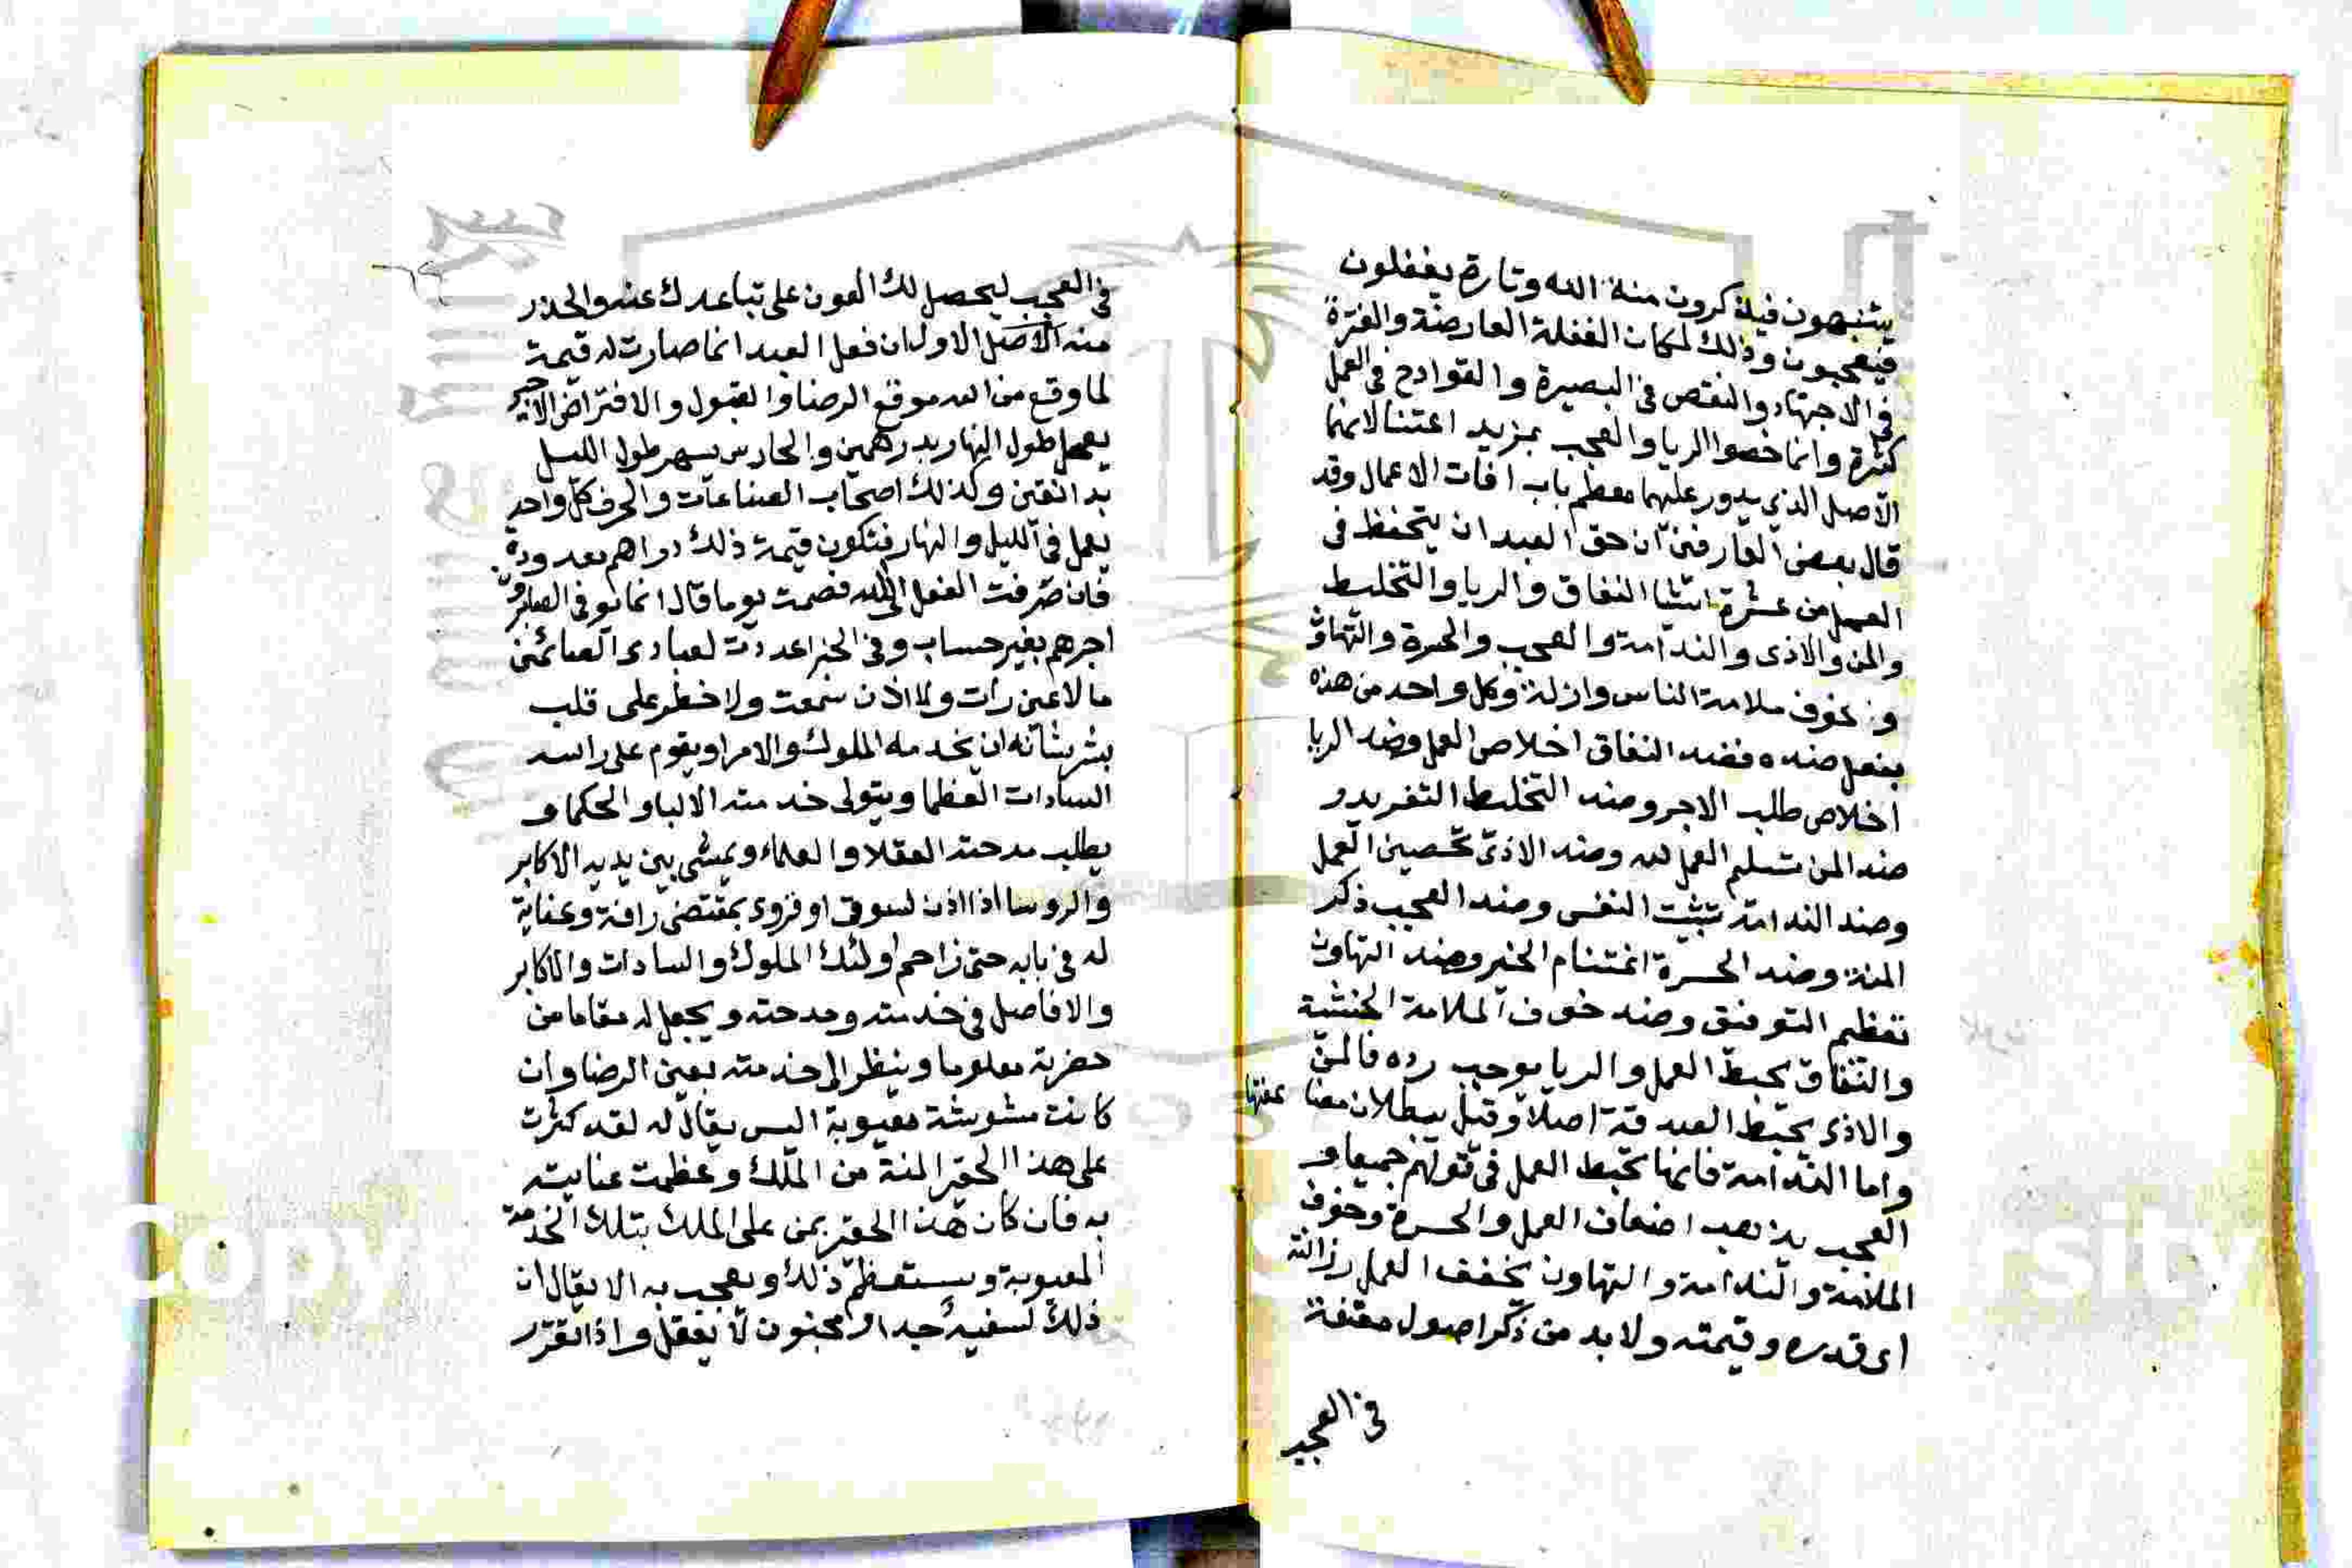 يتنبهون فيذكرون منة الله وتارة يغفلون
فيعجبون وذلك لمكان الغفلة العارضة والفترة
في الاجتهاد والنقص في البصيرة والقوادح في العمل
كثيرة وانما خصوا الريا والعجب بمزيد اعتنا لانهما
الاصل الذي يدور عليهما معظم باب افات الاعمال وقد
قال بعض العارفين ان حق العبد ان يتحفظ في
العمل من عشرة اشيا النفاق والريا والتخليط
والمن والاذى والندامة والعجب والحسرة والتهاون
وخوف ملامة الناس وكل واحد من هذه
ضده فضد النفاق اخلاص العمل وضد الريا
اخلاص طلب الاجر وضد التخليط التفريد و
ضد المن تسليم العمل لله وضد الاذى تحصين العمل
وضد الندامة تثبيت النفس وضد العجب ذكر
المنة وضد الحسرة اغتنام الخير وضد التهاون
تعظيم التوفيق وضد خوف الملامة الخشية
والنفاق يحبط العمل والريا يوجب رده فالمن
والاذى يحبط الصدقة اصلا وقيل ببطلان
واما الندامة فانها تحبط العمل في قولهم جميعا و
العجب يذهب اضعاف العمل والحسرة وخوف
الملامة والندامة والتهاون يخفف العمل رزانته
اى قدره وقيمته ولابد من ذكر اصول مقنعة
في العجب
في العجب ليحصل لك العون على تباعدك عنه والحذر
منه الاصل الاول ان فعل العبد انما صارت له قيمة
لما وقع من الله موقع الرضا والقبول والا فترا الاجير
يعمل طول النهار بدرهمين والحارس يسهر طول الليل
بدانقين وكذلك اصحاب الصناعات والحرف كل واحد
يعمل في الليل والنهار فتكون قيمة ذلك دراهم معدودة
فان صرفت الفعل الى الله فصمت يوما قال انما يوفى الصابرون
اجرهم بغير حساب وفي الخبر اعددت لعبادى الصائمين
ما لا عين رات ولا اذن سمعت ولا خطر على قلب
بشر شانه ان يخدمه الملوك والامرا ويقوم على راسه
السادات العظما ويتولى خدمته الالبا والحكما و
يطلب مدحته العقلا والعلماء ويمشى بين يديه الاكابر
والروسا اذا اذن لسوقى او قروى بمقتضى رافة وعناية
له في بابه حتى زاحم اولئك الملوك والسادات والاكابر
والافاضل في خدمته ومدحته ويجعل له مقاما من
حضرته معلوما وينظر الى خدمته بعين الرضا وان
كانت مشوشة معيوبة اليس يقال له لقد كثرت
على هذا الحقير المنة من الملك وعظمت عنايته
به فان كان هذا الحقير يمن على الملك بتلك الخدمة
المعيوبة ويستعظم ذلك ويعجب به الا يقال ان
ذلك لسفيه جدا او مجنون لا يعقل واذا تقرر